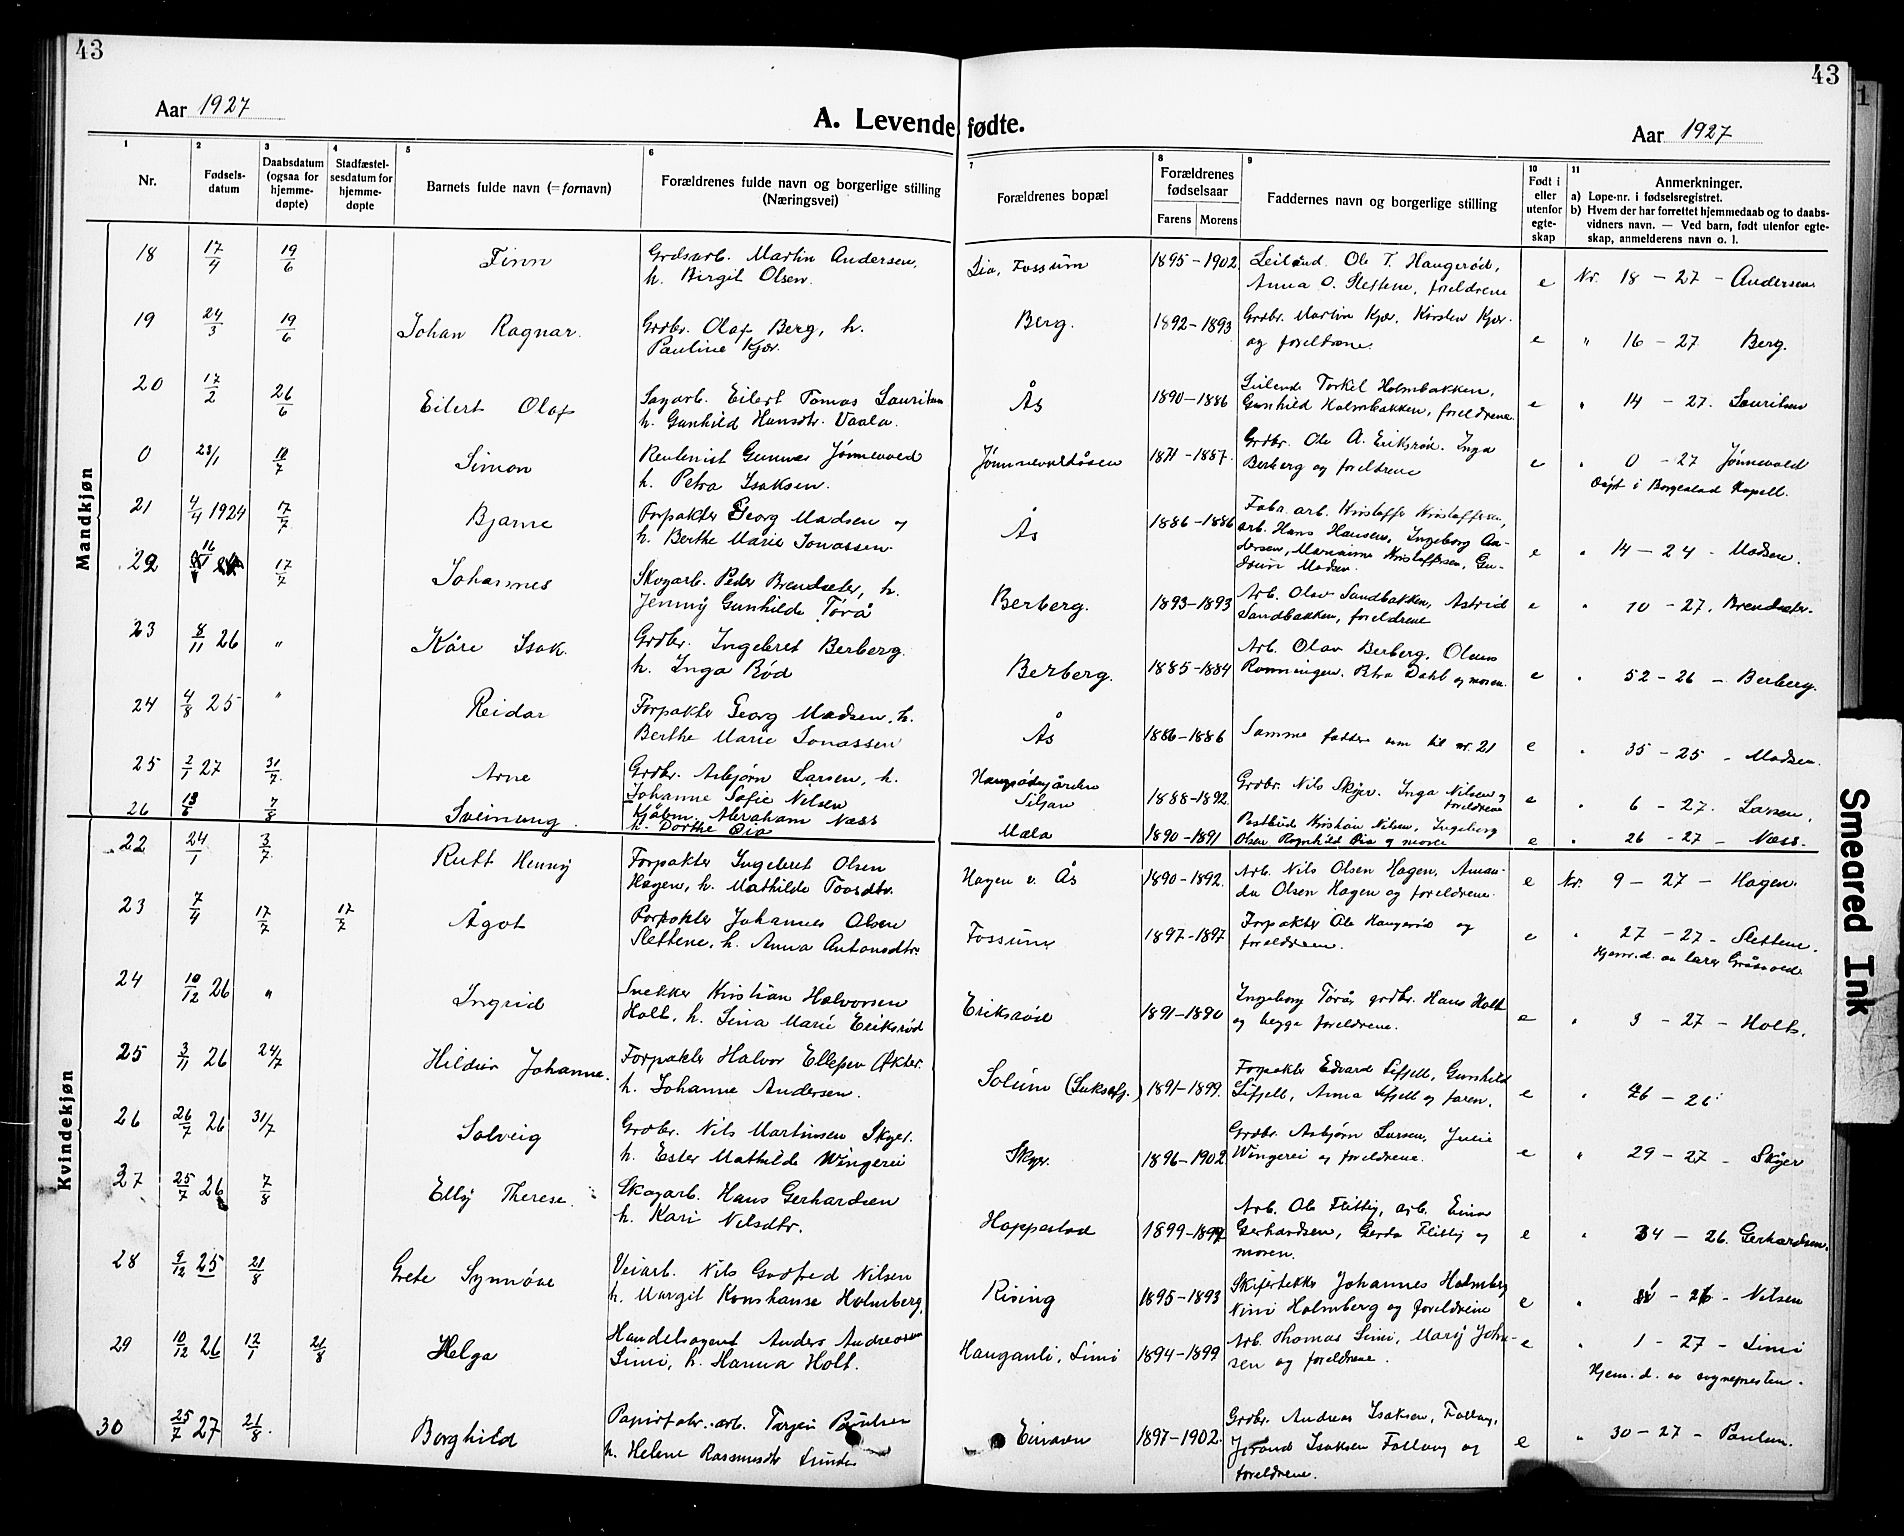 43
43
1
Aar 1927
A. Levende fødte.
Aar 1927
1 Nr.
2 Fødsels-datum
3 Daabsdatum (ogsaa for hjemme-døpte)
4 Stadfæstel-sesdatum for hjemme-døpte
5 Barnets fulde navn (= fornavn)
6 Forældrenes fulde navn og borgerlige stilling (Næringsvei)
7 Forældrenes bopæl
8 Forældrenes fødselsaar
Farens Morens
9 Faddernes navn og borgerlige stilling
10 Født i eller utenfor egte-skap
11 Anmerkninger.
a) Løpe-nr. i fødselsregistret.
b) Hvem der har forrettet hjemmedaab og to daabs-vidners navn. — Ved barn, født utenfor egte-skap, anmelderens navn o. l.
Mandkjøn
18 17/4 19/6 Finn Grdsarb. Martin Andersen, Lia, Fossum 1895-1902 Ole T. Haugerød, Nr. 18 - 27 - Andersen
h. Birgit Olsen. Anna O. Slettene, foreldrene e
19 24/3 19/6 Johan Ragnar. Grdbr. Olaf Berg, h. Berg. 1892-1893 Grdbr. Martin Kjær, Kirsten Kjær e " 16 - 27 Berg.
Pauline Kjær. og foreldrene.
20 17/2 26/6 Eilert Olaf Sagarb. Eilert Tomas Lauritsen Ås 1890-1886 Torkel Holmbakken, e " 14 - 27. Lauritsen
h. Gunhild Hansdtr. Vaala. Gunhild Holmbakken, foreldrene.
0 23/1 10/7 Simon Rentenist Gunnar Jønnevald Jønnevaldåsen 1871-1887. Grdbr. Ole A. Eriksrød. Inga e " 0 - 27 Jønnevald
h. Petra Isaksen. Berberg og foreldrene Døpt i Borgestad Kapell.
21 4/4 1924 17/7 Bjarne Forpakter Georg Madsen og Ås 1886-1886 Fabr. arb. Kristoffer Kristoffersen,
h. Berthe Marie Jonassen. arb. Hans Hansen, Ingeborg An-
dersen, Marianne Kristoffersen, Gu- e " 14 - 24 - Madsen.
drun Madsen.
22 17/7 Johannes Skogarb. Peder Brendsæter, h. Berberg. 1893-1893 Arb. Olav Sandbakken, Astrid e " 10 - 27. Brendsæter.
Jenny Gunhilde Torå Sandbakken, foreldrene
23 8/11 26 " Kåre Isak. Grdbr. Ingebret Berberg. Berberg. 1885-1884 Arb. Olav Berberg, e " 52 - 26 - Berberg.
h. Inga Rød Rønningen, Petra Dahl og moren.
24 4/8 25 " Reidar Forpakter Georg Madsen. h. Ås 1886-1886 Samme faddere som til nr. 21 e " 35 - 25 - Madsen.
Berthe Marie Jonassen
25 2/1 27 31/7 Arne Grdbr. Asbjørn Larsen, h. Siljan 1888-1892. Grdbr. Nils Skyer. Inga Nilsen og e " 6 - 27. Larsen,
Johanne Sofie Nilsen foreldrene
26 13/6 7/8 Sveinung. Kjøbm. Abraham Næss Mæla 1890-1891 Postbud Kristian Nilsen, Ingeborg
h. Dorthe Olsen Ragnhild og moren e " 26 - 27 - Næss.
Kvindekjøn
22 24/1 3/7 Rutt Henny Forpakter Ingebret Olsen Hagen v. Ås 1890-1892. Arb. Nils Olsen Hagen, Aman- e Nr. 9 - 27 - Hagen.
Hagen, h. Mathilde Toresdtr. da Olsen Hagen og foreldrene.
23 7/4 17/7 17/7 Ågot Forpakter Johannes Olsen Fossum 1897-1897 Forpakter Ole Haugerød og e " 27 - 27 - Slettene.
Slettene, h. Anna Antonsdtr. foreldrene. Hjem.d. av lærer Gråvold.
24 10/12 26 " Ingrid Snekker Kristian Halvorsen Eriksrød 1891-1890 Ingeborg Torå, grdbr. Hans Holt e " 3 - 27 - Holt.
Holt, h. Lina Marie Eriksrød og begge foreldrene.
25 3/11 26 24/7 Hildur Johanne. Forpakter Halvor Ellefsen Økter. Solum 1891-1899. Forpakter Edvard Lifjell, Gunhild
h. Johanne Andersen. Lifjell, Anna Lifjell og faren. e " 46 - 26.
26 26/7 26 31/7 Solveig Grdbr. Nils Martinsen Skyer. Skyer. 1896-1902. Grdbr. Asbjørn Larsen, Julie e " 29 - 27 - Skyer
h. Ester Mathilde Wingerei Wingerei og foreldrene.
27 25/7 26 7/8 Elly Therese. Skogarb. Hans Gerhardsen Hoppestad 1899-1899 Arb. Ole Flittig, arb. Einar
h. Kari Nilsdtr. Gerhardsen, Gerda Flittig og e " 34 - 26. Gerhardsen.
moren.
28 9/12 25 21/8 Grete Synnøve Veiarb. Nils Godfred Nilsen Rising 1895-1893 Skifertekker Johannes Holmberg
h. Margit Konstanse Holmberg. Nini Holmberg og foreldrene e " - 26 - Nilsen
29 10/12 26 12/1 21/8 Helga Handelsagent Anders Andreassen Hauganli, Limi 1894-1899 Arb. Thomas Limi, Mary Johan- e " 1 - 27 - Limi
Limi, h. Hanna Holt. sen og foreldrene. Hjem.d. av sognepresten.
30 25/7 27 21/8. Borghild Papirfabr.arb. Torjus Paulsen 1897-1902. Grdbr. Andreas Isaksen, " 30 - 27 - Paulsen.
h. Helene Rasmusdtr. Isaksen og e
foreldrene.
Smeared Ink